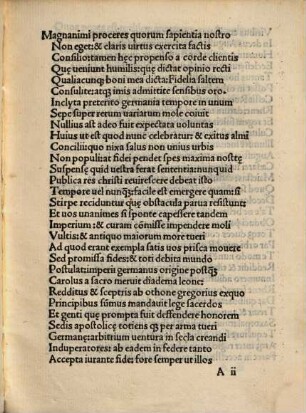 Magnanimi proceres quorum sapientia nostro
Non eget: & claris uirtus exercita factis
Consilio: tamen hęc propenso a corde clientis
Quę ueniunt humilis: quę dictat opinio recti
Qualiacunq; boni mea dicta: Fidelia saltem
Consulite: atq; imis admittite sensibus oro.
Inclyta preterito germania tempore in unum
Sępe super rerum uariarum mole coiuit
Nullius ast adeo fuit expectata uoluntas
Huius ut est quod nunc celebratur: & exitus almi
Conciliiquo nixa salus non unius urbis
Non populi: at fidei pendet spes maxima nostrę
Suspensę quid uestra ferat sententia: nunquid
Publica res christi reuirescere debeat isto
Tempore uel nunq̃: facile est emergere quamsi
Stirpe reciduntur quę obstacula parua resistunt:
Et uos unanimes si sponte capessere tandem
Imperium: & curam cōmisse impendere molī
Vultis: & antiquo maiorum more tueri
Ad quod erant exempla satis uos prisca mouere
Sed promissa fides: & toti debita mundo
Postulat: imperii germanus origine postq̃
Carolus a sacro meruit diadema leone:
Redditus & sceptris ab othone gregorius exquo
Principibus sūmus mandauit lege sacerdos
Et genti quę prompta fuit dessendere honorem
Sedis apostolicę totiens q; per arma tueri
Germanę: arbitrium uentura in secla creandi
Induperatores: ab eadem in federe tanto
Accepta iurante fide: fore semper ut illos
A ii